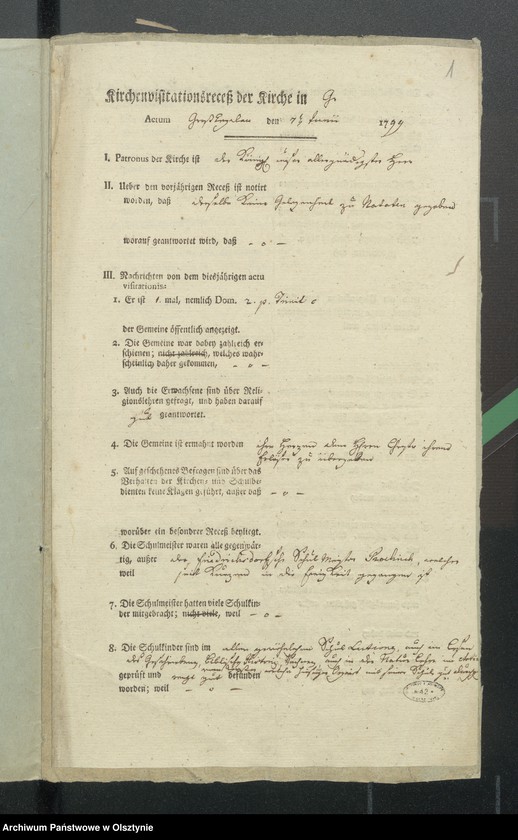 1
Kirchenvisitationsreceß der Kirche in G.
Actum Groß Engelau den 7t Junii 1799
I. Patronus der Kirche ist der König unser allergnädigster Herr
II. Ueber den vorjährigen Receß ist notiret
worden, daß derselbe keine Gelegenheit zu Notaten gegeben
worauf geantwortet wird, daß - o -
III. Nachrichten von dem diesjährigen actu
visitationis:
1. Er ist 1. mal, nemlich Dom. 2. p. Trinit
der Gemeine öffentlich angezeigt.
2. Die Gemeine war dabey zahlreich er-
schienen; nicht zahlreich, welches wahr-
scheinlich daher gekommen, - o -
3. Auch die Erwachsene sind über Reli-
gionslehren gefragt, und haben darauf
gut geantwortet.
4. Die Gemeine ist ermahnt worden ihre Herzen dem Herrn
zu übergeben
5. Auf geschehenes Befragen sind über das
Verhalten der Kirchen- und Schulbe-
dienten keine Klagen geführt, außer daß - o -
worüber ein besondrer Receß beyliegt.
6. Die Schulmeister waren alle gegenwär-
tig, außer der Schul Meister welcher
weil in die Ewigkeit gegangen ist
7. Die Schulmeister hatten viele Schulkin-
der mitgebracht; nicht viele, weil - o -
8. Die Schulkinder sind im allen gewöhnlichen Schul auch im Lesen
des Geschriebenen, Biblische auch in der Natur Lehre
geprüft und recht gut befunden
worden; weil - o -
42
Archiwum Państwowe w Olsztynie